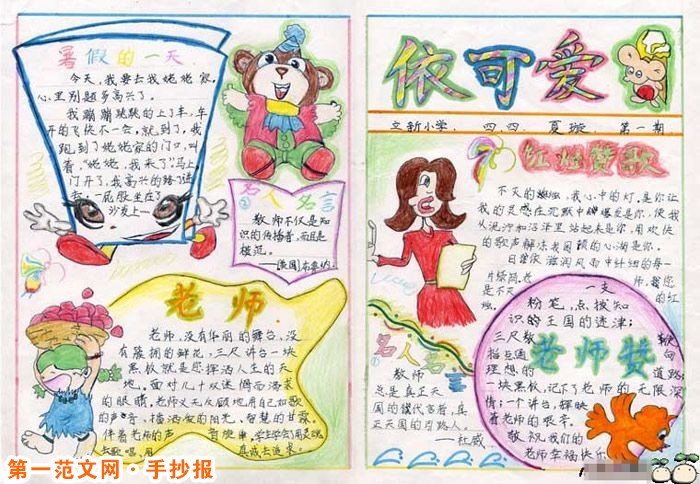 暑假的一天
今天，我要去我姥姥家，
心里别题多高兴了。
我蹦蹦跳跳的上了车，车
开的飞快不一会，就到了，我
跑到了姥姥家的门口，叫
着，“姥姥，我来了”马上
门开了，我高兴的
一屁股坐在
沙发上
名人名言
②
教师不仅是知
识的传播者，而且是
模范。
老师
老师，没有华丽的舞台，没
有簇拥的鲜花，三尺讲台一块
黑板就是您挥洒人生的天
地。面对几十双迷惘而渴求
的眼睛，老师义无反顾地用自己如歌
的声音，描洒灿的阳光，智慧的甘霖。
伴着老师的声
依可爱
立新小学、四、四、夏璇、第一期
红烛赞歌
不灭的蜡烛，我心中的灯，是你让
我的灵感在沉默中爆发是你，使我
从泥泞和沼泽里站起来是你，用欢快
的歌声解冻我困顿的心湖是你，
日常依滋润风雨中
一支
粉笔，点拨知
识的王国的迷津；
三尺教
老师赞
理想的
道路
一块黑板，记下了老师的无限深
情；一个讲台，辉映
着老师的艰辛。
敬祝我们的
老师幸福快乐
名人名言
①
教师
总是真正天
国的代言者，真
正天国的引路人。
——杜威
第一范文网·手抄报